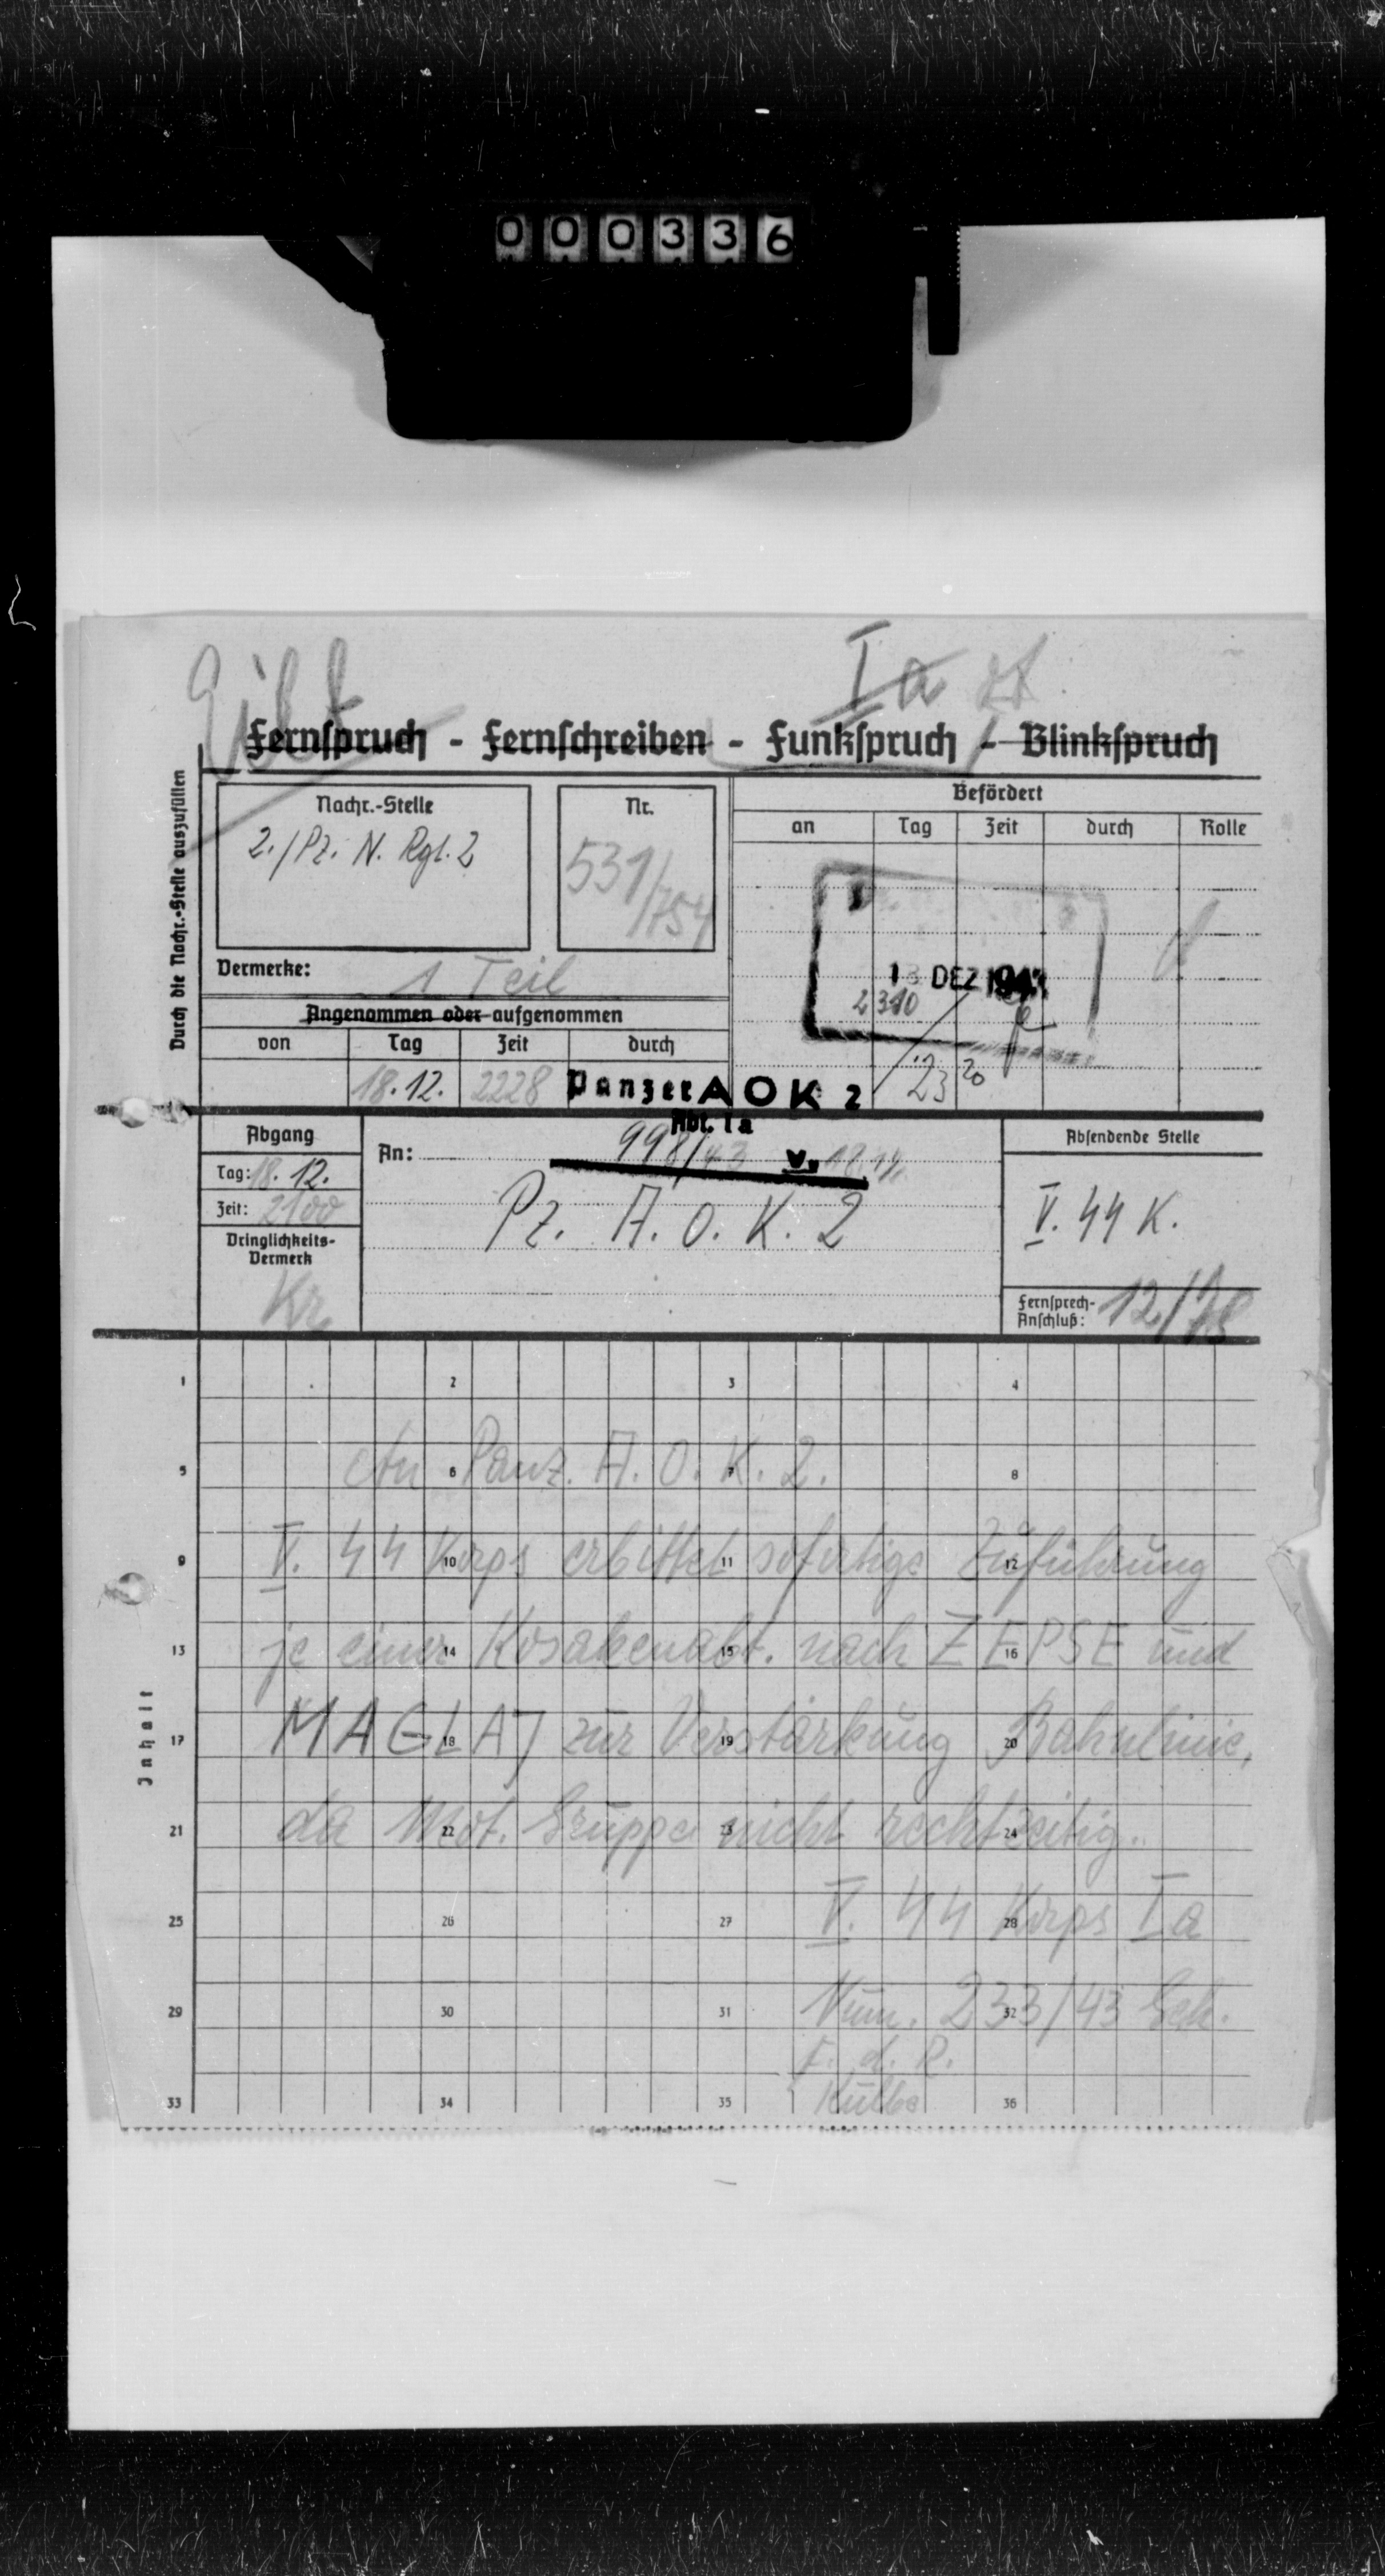 000336
Gibt
Ia
Fernspruch - Fernschreiben - Funkspruch - Blinkspruch
Durch die Nachr.-Stelle auszufüllen
Nachr.-Stelle
2./Pz. N. Rgt. 2
Nr.
531/754
Befördert
an Tag Zeit durch Rolle
Vermerke: 1 Teil
Angenommen oder aufgenommen
von Tag Zeit durch
18.12. 2228
DEZ 1943
2310
23 20
Panzer AOK 2
Abt. Ia
998/43 v. 18.12.
Abgang
Tag: 18. 12.
Zeit: 2100
Dringlichkeits-
Vermerk
Kr
An:
Pz. A. O. K. 2
Absendende Stelle
V. 44 K.
Fernsprech-
Anschluß: 12/78
Inhalt
1 2 3 4
An Panz. A. O. K. 2.
5 6 7 8
V. 44 Korps erbittet sofortige Zuführung
9 10 11 12
je einer Kosakenabt. nach ZEPSE und
13 14 15 16
MAGLAJ zur Verstärkung Bahnlinie,
17 18 19 20
da Mot. Gruppe nicht rechtzeitig.
21 22 23 24
V. 44 Korps Ia
25 26 27 28
Num. 233/43 Geh.
29 30 31 32
F. d. R.
33 34 35 36